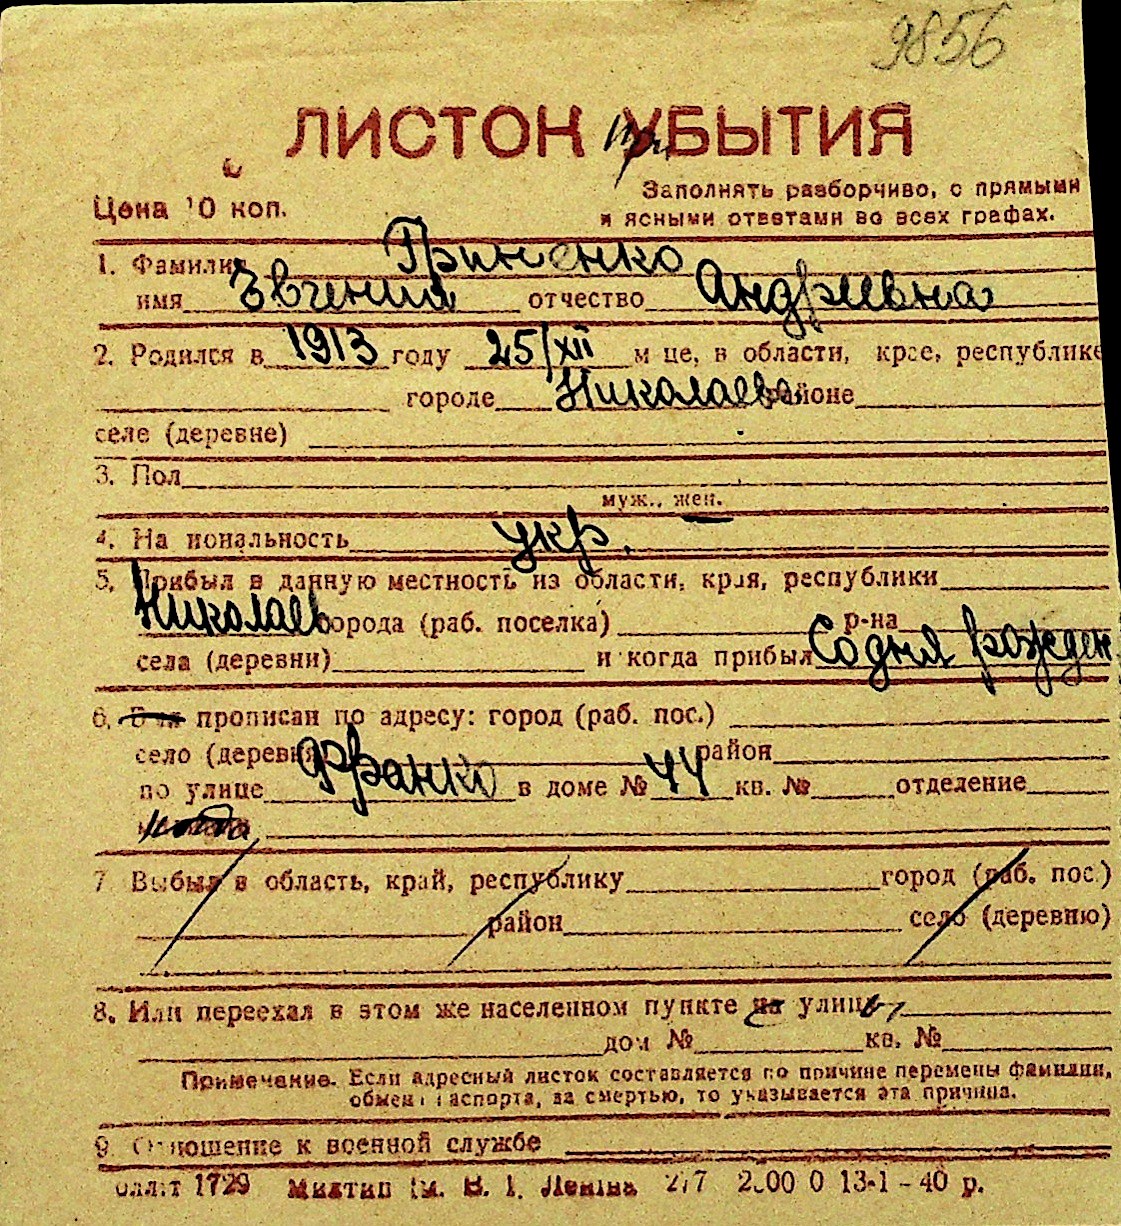 9856
ЛИСТОК УБЫТИЯ
при
Цена 10 коп.
Заполнять разборчиво, с прямыми
и ясными ответами во всех графах.
1. Фамилия Гриненко
имя Эвгения отчество Андривна
2. Родился в 1913 году 25/XII м це, в области, крае, республике
городе Николаеве районе
селе (деревне)
3. Пол
муж., жен.
4. На иональность укр.
5. Прибыл в данную местность из области, края, республики
Николаев города (раб. поселка) р-на
села (деревни) и когда прибыл Со дня рожден
6. прописан по адресу: город (раб. пос.)
село (деревня) район
по улице Франко в доме № 44 кв. № отделение
7 Выбыл в область, край, республику город (раб. пос.)
район село (деревню)
8. Или переехал в этом же населенном пункте на улицы
дом № кв. №
Примечание. Если адресный листок составляется по причине перемены фамилии,
обмена паспорта, за смертью, то указывается эта причина.
9. Отношение к военной службе
1729 Миктип Им. В. І. Леніна 277 2000 0 13-1-40 р.